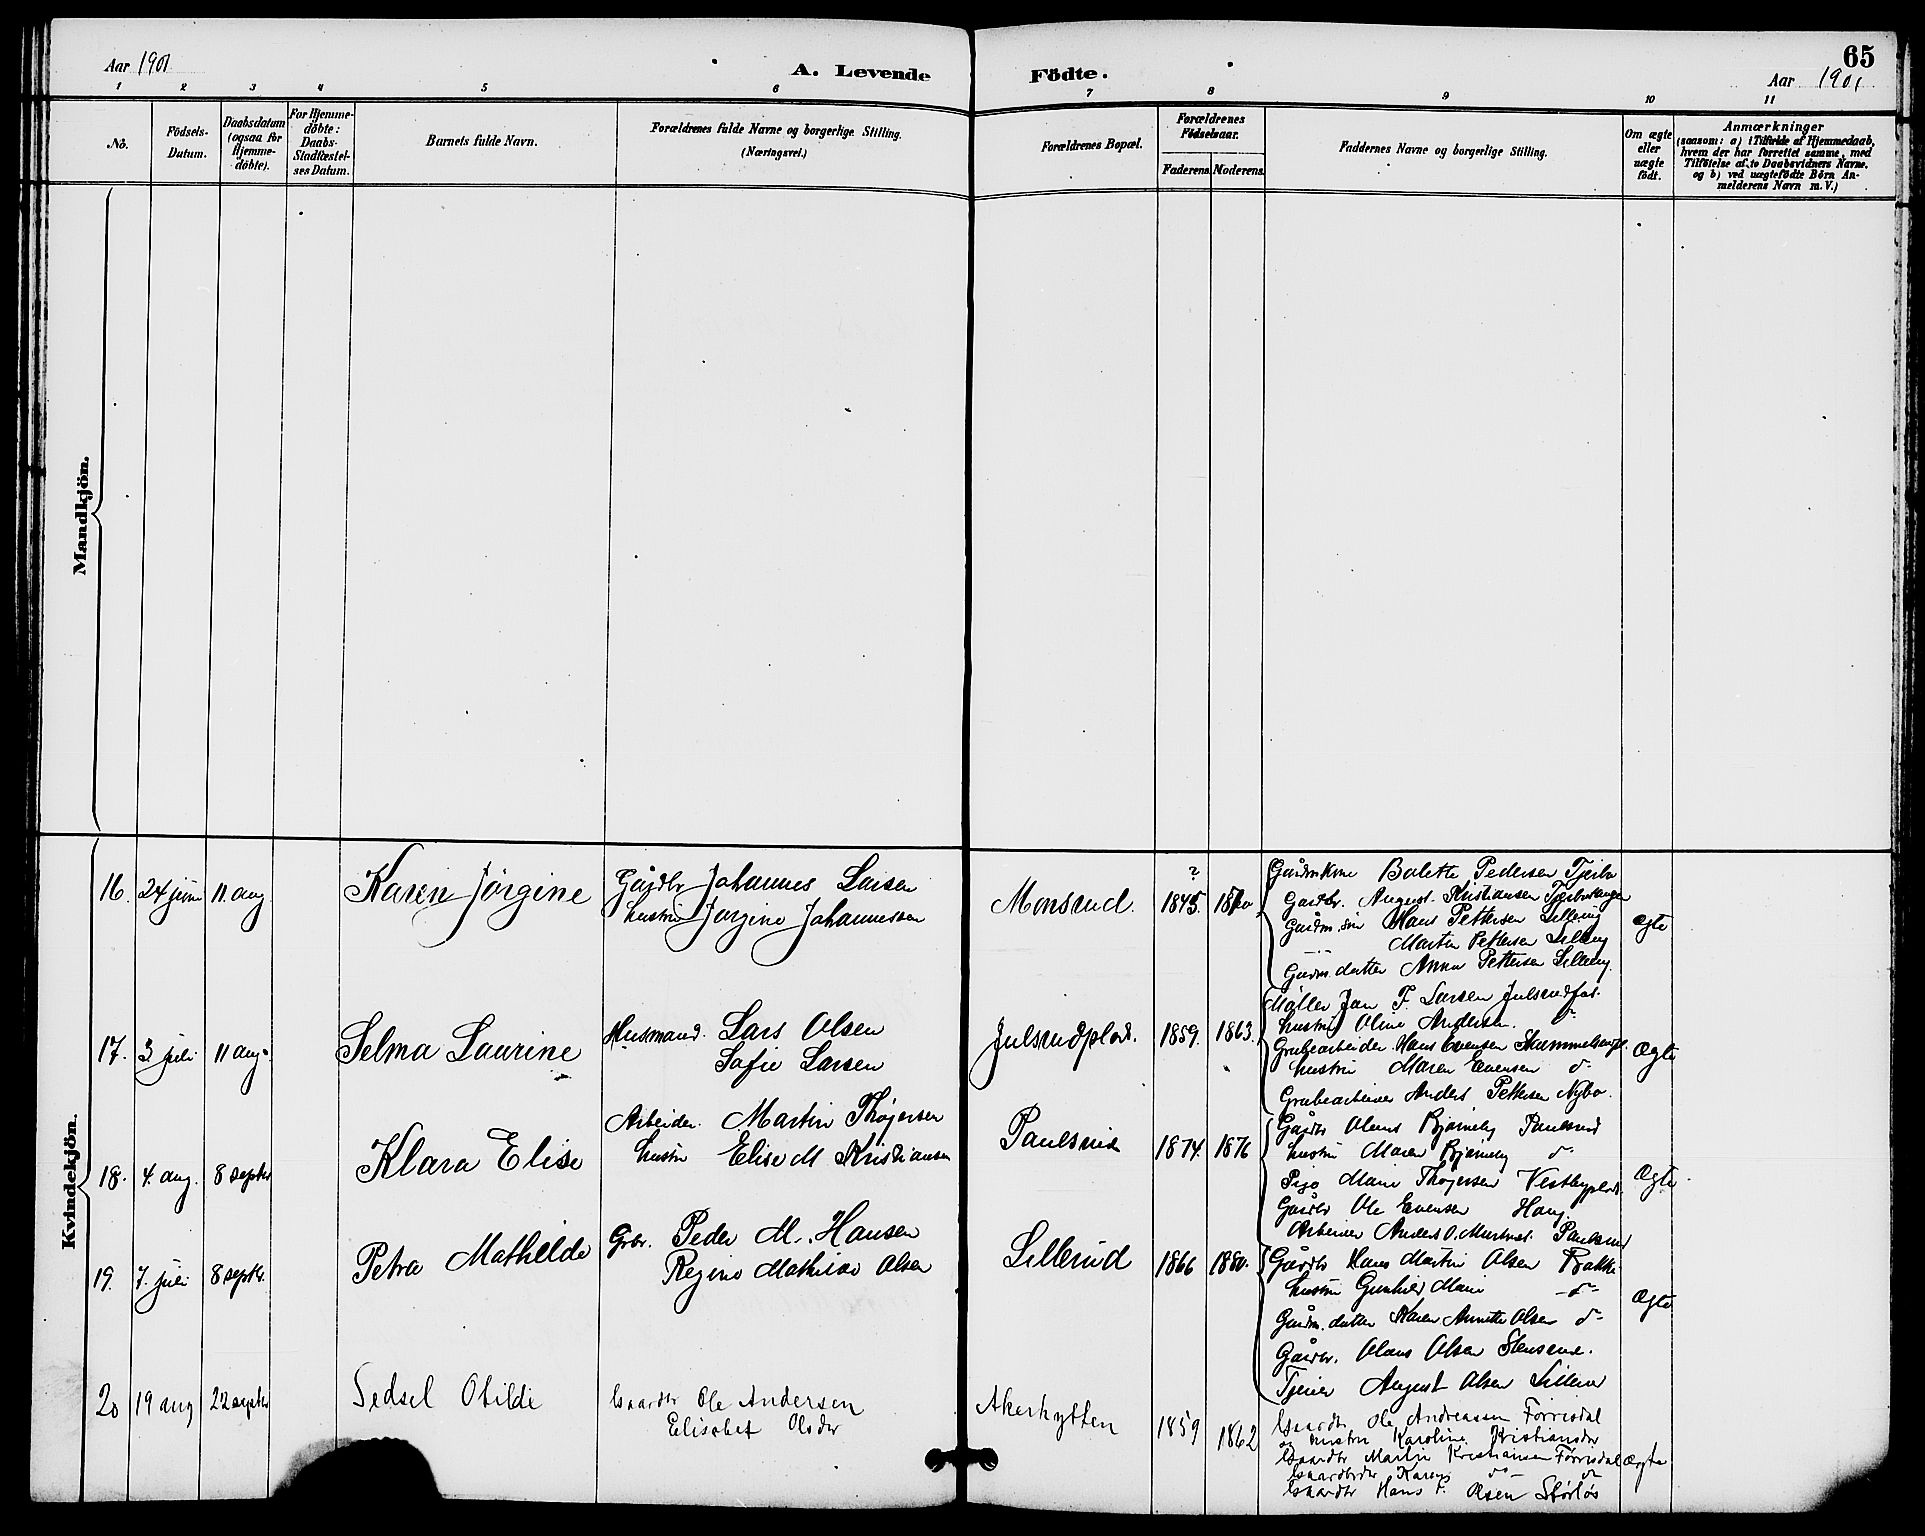 65
Aar 1901
A. Levende Födte.
Aar 1901
1 2 3 4 5 6 7 8 9 10 11
No.
Födsels-
Datum.
Daabsdatum
(ogsaa for
Hjemme-
döbte).
For Hjemme-
döbte:
Daabs-
Stadfæstel-
ses Datum.
Barnets fulde Navn.
Forældrenes fulde Navne og borgerlige Stilling.
(Næringsvei.)
Forældrenes Bopæl.
Forældrenes
Födselsaar.
Faderens. Moderens.
Faddernes Navne og borgerlige Stilling.
Om ægte
eller
uægte
födt.
Anmærkninger
(saasom: a) i Tilfælde af Hjemmedaab,
hvem der har forrettet samme, med
Tilföielse af to Daabsvidners Navne.
og b) ved uægtefödte Börn An-
melderens Navn m. V.)
Mandkjön.
Kvindekjön.
16. 24 juni 11. aug Karen Jörgine
Gårdbr Johannes Larsen
hustru Jørgine Johannessen
Monsrud. ? 1845. 1870
Gårdmkone Bolette Pedersen Tjerbo
Gardbr. August Kristiansen
Gårdm. sön Hans Pettersen Lilleng
Martin Pettersen Lilleng
Gårdm. datter Anna Pettersen Lilleng.
Ægte
17. 3 juli 11 aug. Selma Laurine
Husmand. Lars Olsen
Sofie Larsen
Julsrudplads. 1859. 1863.
Möller Jan F. Larsen
hustru Oline Andersen. do
Grubearbeider Hans Evensen
hustru Maren Evensen do
Grubearbeider Anders Pettersen Nybo.
Ægte
18. 4. aug. 8 septr Klara Elise
Arbeider. Martin Thøgersen
hustru Elise M Kristiansen
Paulsrud 1874. 1876
Gårdbr Olaus Bjørneby Paulsrud
hustru Maren Bjørneby do
Pige Marie Thøgersen Vestbyplads.
Gårdbr Ole Evensen Haug.
Arbeider Anders O. Paulsrud
Ægte
19. 7. juli 8 septr. Petra Mathilde
Gbr. Peder M. Hansen
Regine Mathilde Olsen
Lillerud 1866 1880.
Gårdbr Hans Martin Olsen Bakke
hustru Gunhild Marie do
Gårdm. datter Karen Annette Olsen do
Gårdbr. Olaus Olsen Stensrud.
Tjener August Olsen Lillerud
Ægte
20 19 aug 22 septr Sedsel Otilde
Gaardbr Ole Andersen
Elisabet Olsdr
Akerhytten 1859 1862
Gaardbr Ole Andreassen Forrisdal
og hustru Karoline Kristiansdr
Gaardbr Martin Kristiansen Førrisdal
Karen do do
Gaardbr Hans F. Olsen Størløs
Ægte